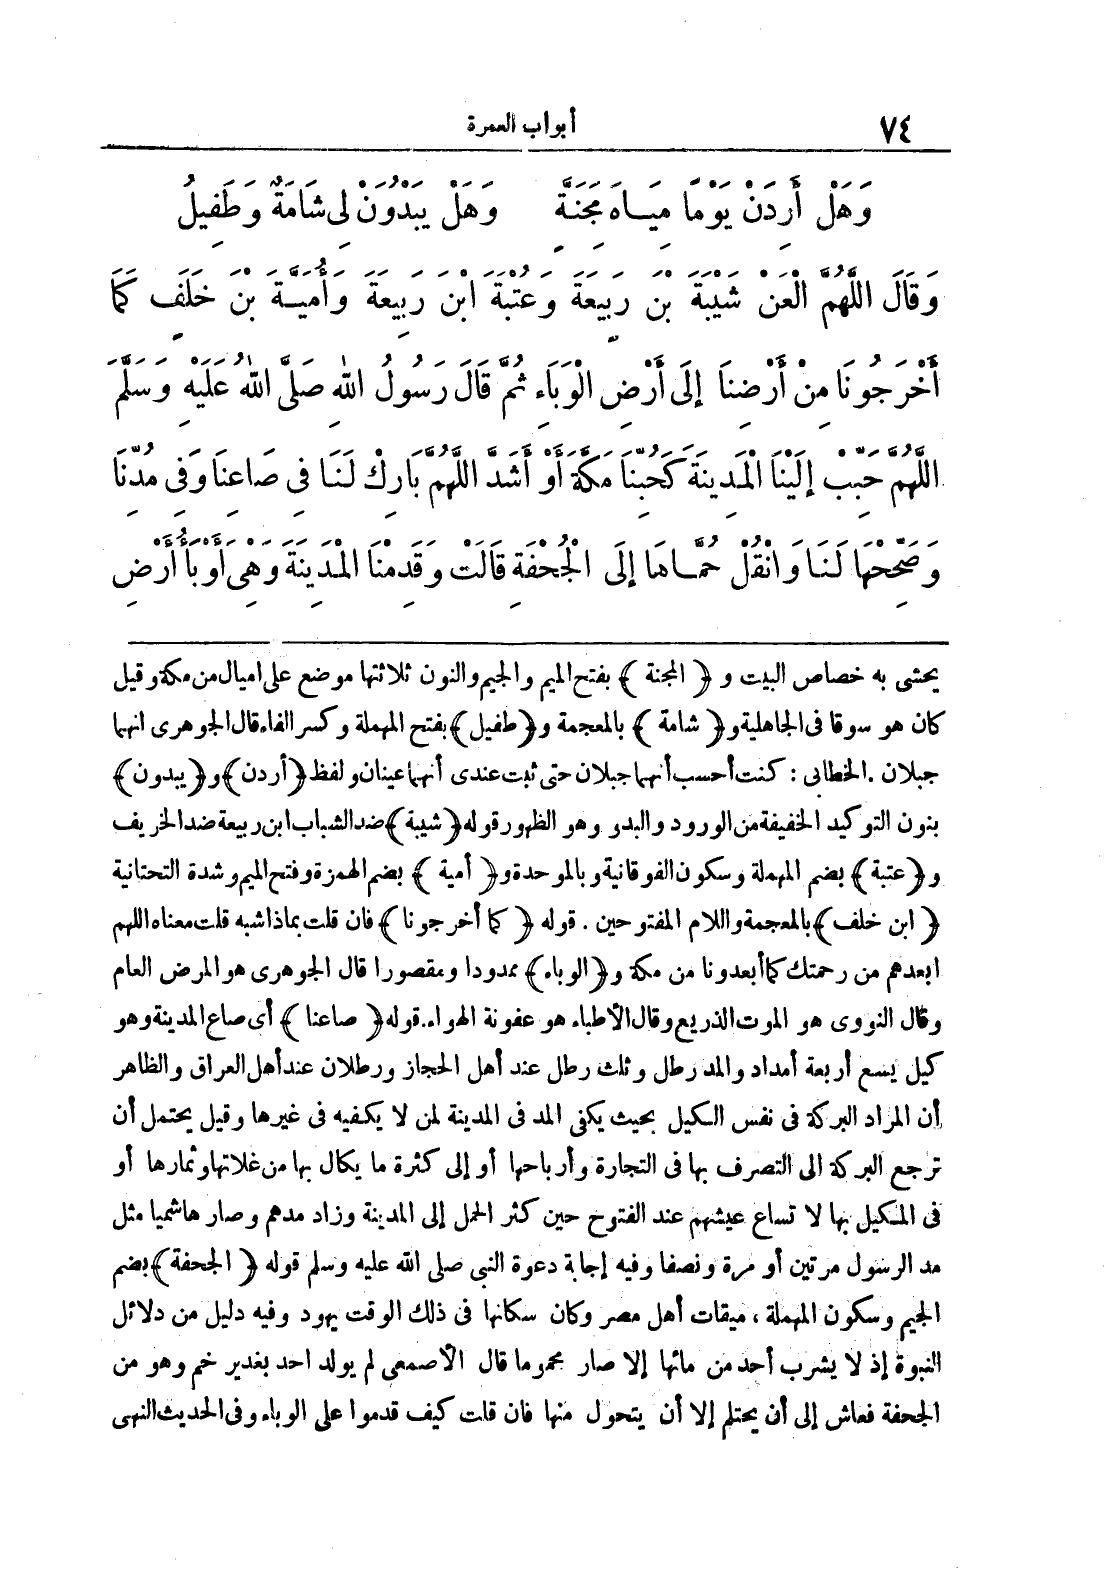 ٧٤ أبواب العمرة
وَهَلْ أَرِدَنْ يَوْمًا مِيَاهَ مَجَنَّةٍ وَهَلْ يَبْدُوَنْ لِي شَامَةٌ وَطَفِيلُ
وَقَالَ اللَّهُمَّ الْعَنْ شَيْبَةَ بْنَ رَبِيعَةَ وَعُتْبَةَ ابْنَ رَبِيعَةَ وَأُمَيَّةَ بْنَ خَلَفٍ كَمَا
أَخْرَجُونَا مِنْ أَرْضِنَا إِلَى أَرْضِ الْوَبَاءِ ثُمَّ قَالَ رَسُولُ اللهِ صَلَّى اللهُ عَلَيْهِ وَسَلَّمَ
اللَّهُمَّ حَبِّبْ إِلَيْنَا الْمَدِينَةَ كَحُبِّنَا مَكَّةَ أَوْ أَشَدَّ اللَّهُمَّ بَارِكْ لَنَا فِي صَاعِنَا وَفِي مُدِّنَا
وَصَحِّحْهَا لَنَا وَانْقُلْ حُمَّاهَا إِلَى الْجُحْفَةِ قَالَتْ وَقَدِمْنَا الْمَدِينَةَ وَهْيَ أَوْبَأُ أَرْضِ
يحشى به خصاص البيت و ﴿ المجنة ﴾ بفتح الميم والجيم والنون ثلاثتها موضع على اميال من مكة وقيل
كان هو سوقا فى الجاهلية و ﴿ شامة ﴾ بالمعجمة و ﴿ طفيل ﴾ بفتح المهملة وكسر الفاء قال الجوهرى انهما
جبلان . الخطابى : كنت أحسب أنهما جبلان حتى ثبت عندى أنهما عينان ولفظ ﴿ أردن ﴾ و ﴿ يبدون ﴾
بنون التوكيد الخفيفة من الورود والبدو وهو الظهور قوله ﴿ شيبة ﴾ ضد الشباب ابن ربيعة ضد الخريف
و ﴿ عتبة ﴾ بضم المهملة وسكون الفوقانية وبالموحدة و ﴿ أمية ﴾ بضم الهمزة وفتح الميم وشدة التحتانية
﴿ ابن خلف ﴾ بالمعجمة واللام المفتوحين . قوله ﴿ كما أخرجونا ﴾ فان قلت بماذا شبه قلت معناه اللهم
ابعدهم من رحمتك كما أبعدونا من مكة و ﴿ الوباء ﴾ ممدودا ومقصورا قال الجوهرى هو المرض العام
وقال النووى هو الموت الذريع وقال الأطباء هو عفونة الهواء . قوله ﴿ صاعنا ﴾ أى صاع المدينة وهو
كيل يسع أربعة أمداد والمد رطل وثلث رطل عند أهل الحجاز ورطلان عند أهل العراق والظاهر
أن المراد البركة فى نفس المكيل بحيث يكفى المد فى المدينة لمن لا يكفيه فى غيرها وقيل يحتمل أن
ترجع البركة الى التصرف بها فى التجارة وأرباحها أو إلى كثرة ما يكال بها من غلاتها وثمارها أو
فى المكيل بها لا تساع عيشهم عند الفتوح حين كثر الحمل إلى المدينة وزاد مدهم وصار هاشميا مثل
مد الرسول مرتين أو مرة ونصفا وفيه إجابة دعوة النبى صلى الله عليه وسلم قوله ﴿ الجحفة ﴾ بضم
الجيم وسكون المهملة ، ميقات أهل مصر وكان سكانها فى ذلك الوقت يهود وفيه دليل من دلائل
النبوة إذ لا يشرب أحد من مائها إلا صار محموما قال الأصمعى لم يولد احد بغدير خم وهو من
الجحفة فعاش إلى أن يحتلم إلا أن يتحول منها فان قلت كيف قدموا على الوباء وفى الحديث النهى